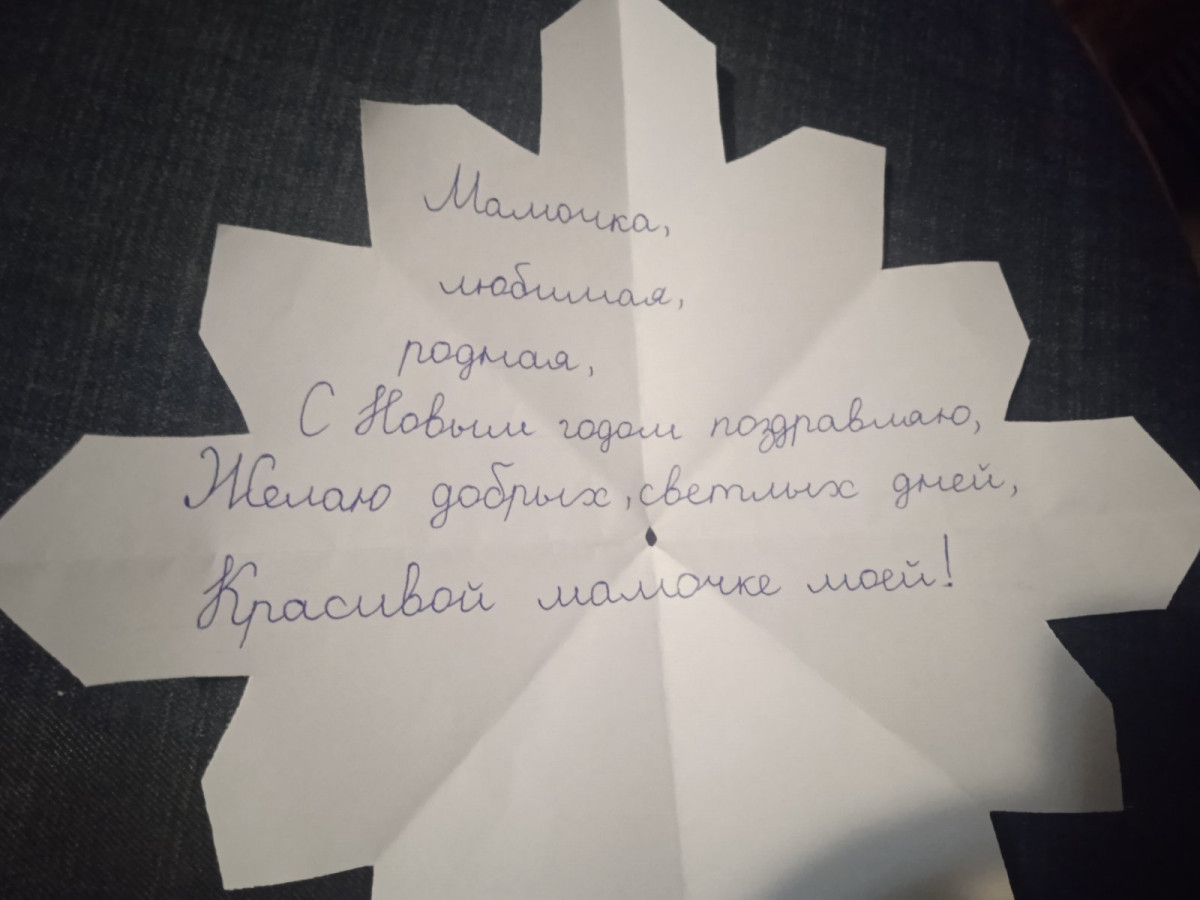 Мамочка,
любимая,
родная,
С Новым годом поздравляю,
Желаю добрых, светлых дней,
Красивой мамочке моей!